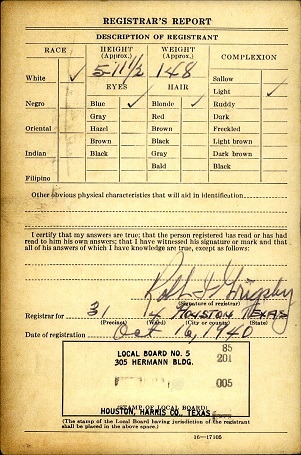 REGISTRAR'S REPORT
DESCRIPTION OF REGISTRANT
RACE HEIGHT (Approx.) WEIGHT (Approx.) COMPLEXION
White ✓ 5-11 1/2 148 Sallow
EYES HAIR Light ✓
Negro Blue ✓ Blonde ✓ Ruddy
Gray Red Dark
Oriental Hazel Brown Freckled
Brown Black Light brown
Indian Black Gray Dark brown
Bald Black
Filipino
Other obvious physical characteristics that will aid in identification
I certify that my answers are true; that the person registered has read or has had
read to him his own answers; that I have witnessed his signature or mark and that
all of his answers of which I have knowledge are true, except as follows:
Grigsby
(Signature of registrar)
Registrar for 31 14 Houston Texas
(Precinct) (Ward) (City or county) (State)
Date of registration Oct 16, 1940
LOCAL BOARD NO. 5 85
305 HERMANN BLDG. 201
005
(STAMP OF LOCAL BOARD)
HOUSTON, HARRIS CO., TEXAS
(The stamp of the Local Board having jurisdiction of the registrant
shall be placed in the above space.)
16—17105